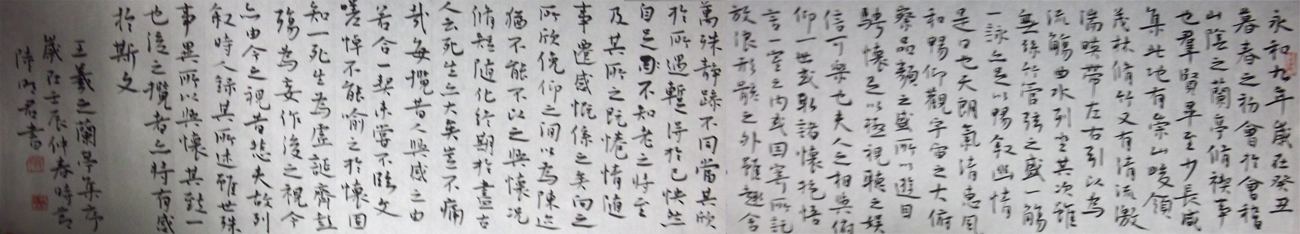 永和九年歲在癸丑
暮春之初會於會稽
山陰之蘭亭脩禊事
也羣賢畢至少長咸
集此地有崇山峻領
茂林脩竹又有清流激
湍暎帶左右引以為
流觴曲水列坐其次雖
無絲竹管弦之盛一觴
一詠亦足以暢敘幽情
是日也天朗氣清惠風
和暢仰觀宇宙之大俯
察品類之盛所以遊目
騁懷足以極視聽之娛
信可樂也夫人之相與俯
仰一世或取諸懷抱悟
言一室之內或因寄所託
放浪形骸之外雖趣舍
萬殊靜躁不同當其欣
於所遇暫得於己快然
自足不知老之將至
及其所之既惓情隨
事遷感慨係之矣向之
所欣俛仰之間以為陳迹
猶不能不以之興懷況
脩短隨化終期於盡古
人云死生亦大矣豈不痛
哉每攬昔人興感之由
若合一契未嘗不臨文
嗟悼不能喻之於懷固
知一死生為虛誕齊彭
殤為妄作後之視今
亦由今之視昔悲夫故列
敘時人錄其所述雖世殊
事異所以興懷其致一
也後之攬者亦將有感
於斯文
王羲之蘭亭集序
歲在壬辰仲春時
君書